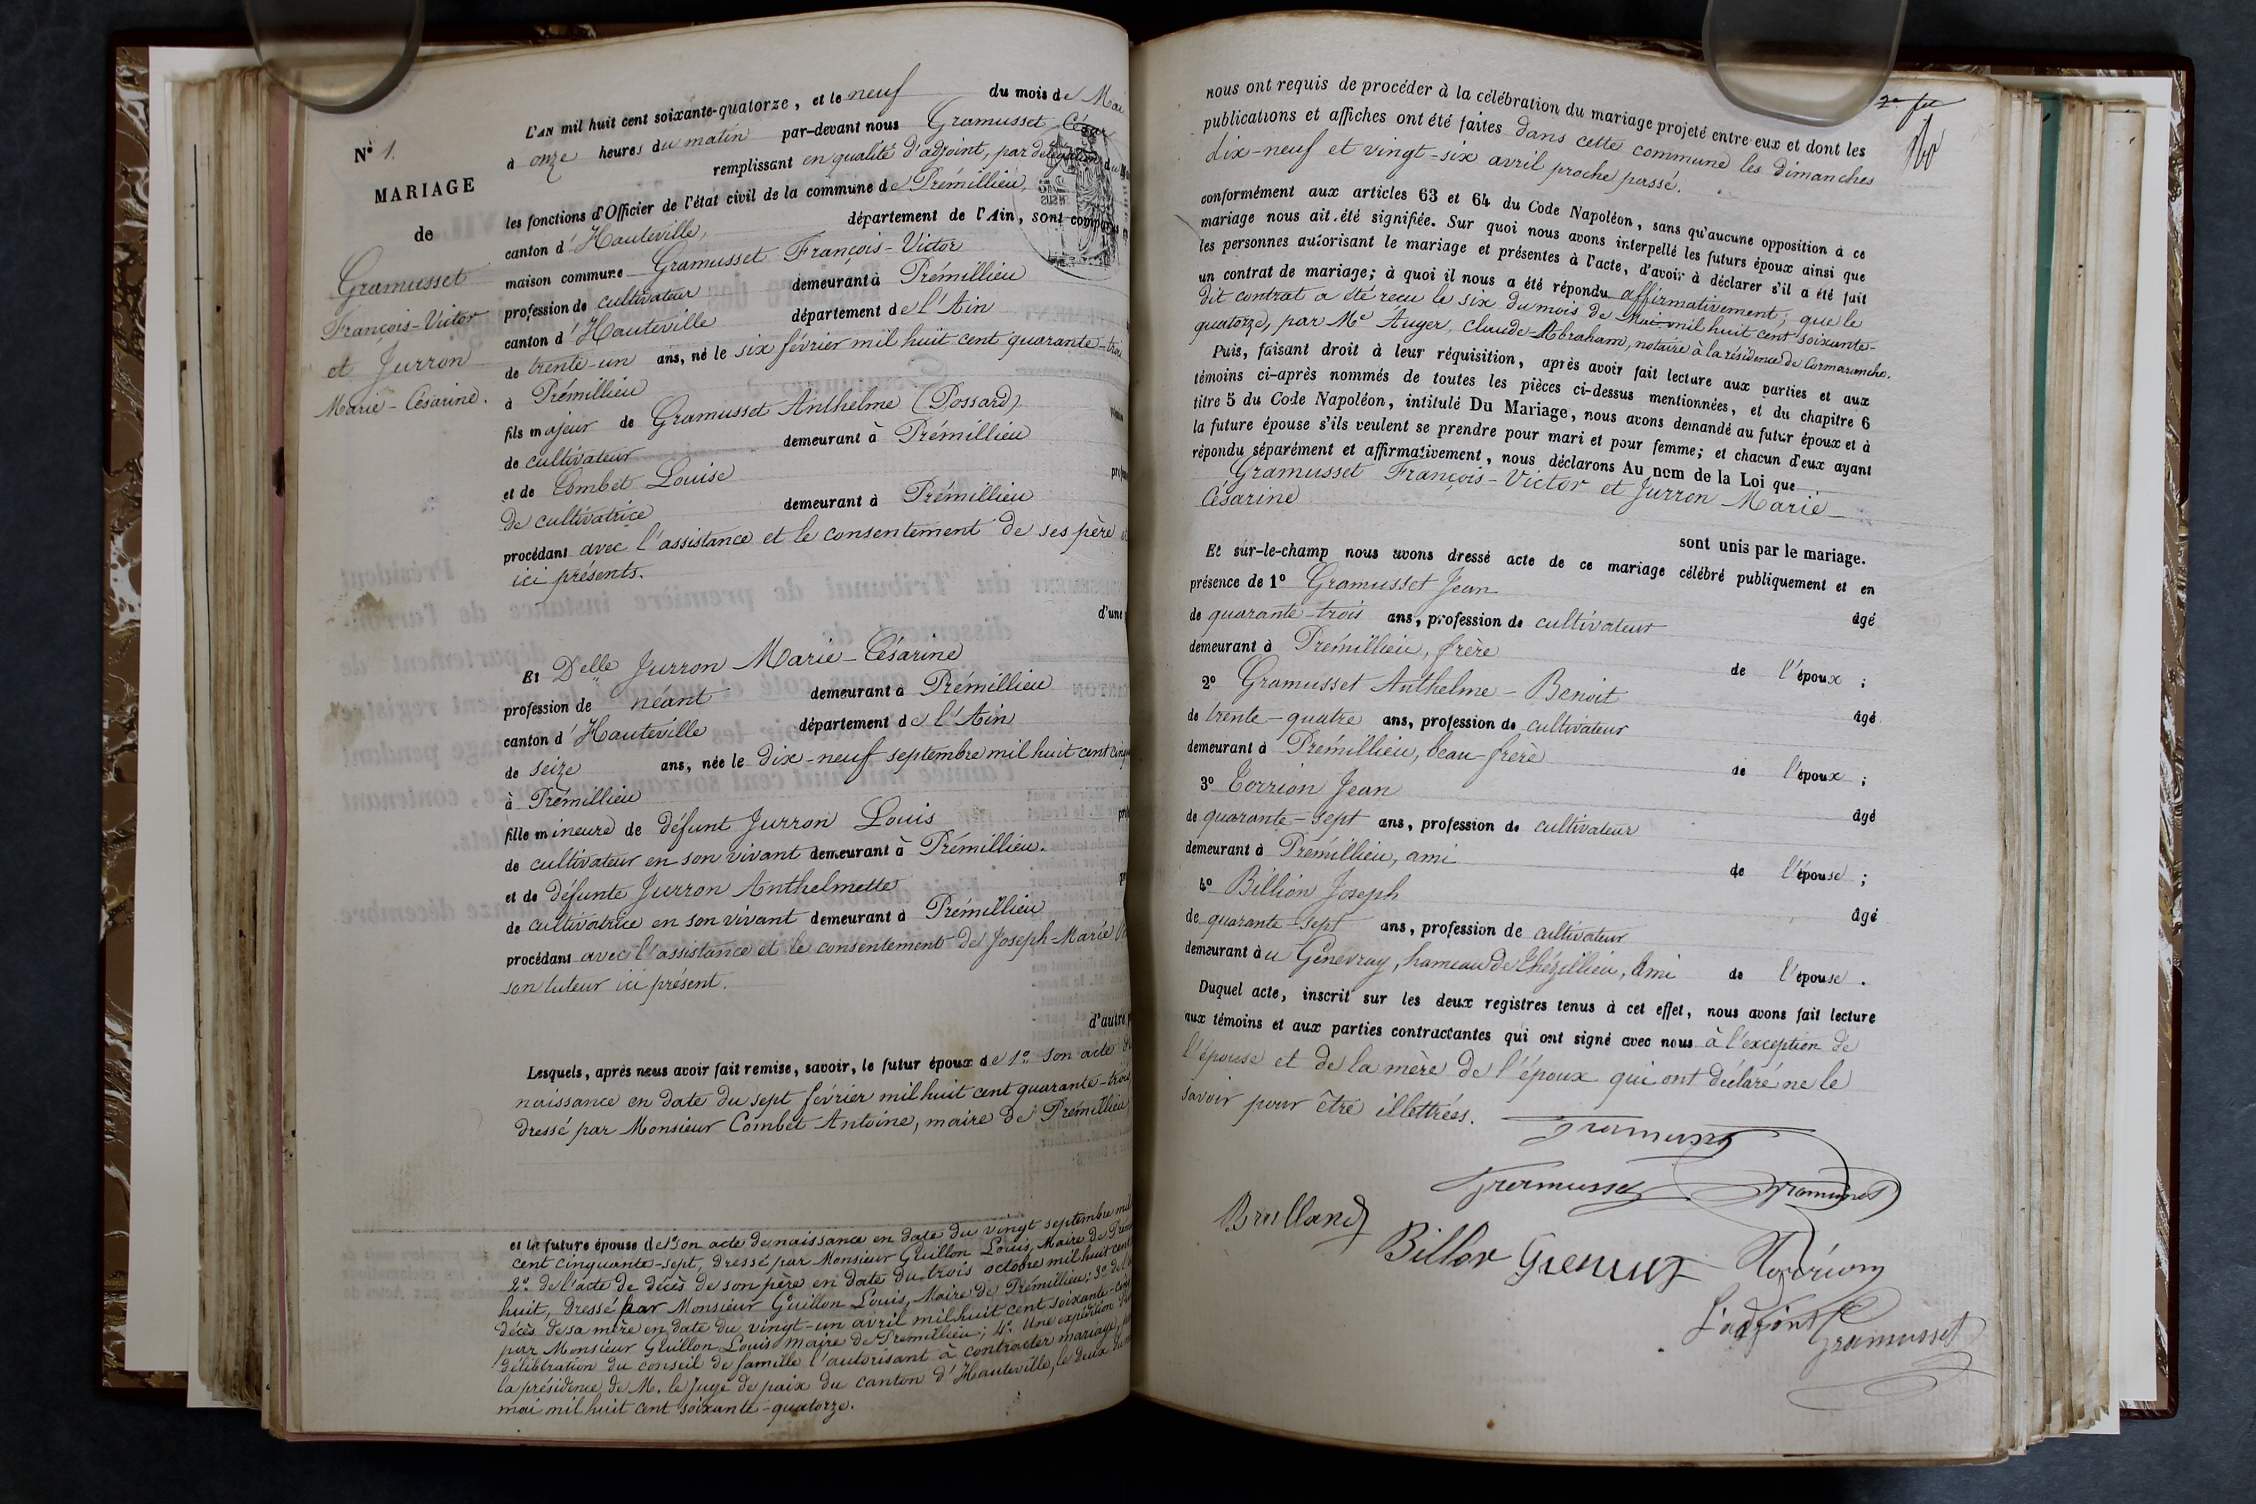 N° 1.
MARIAGE
de
Gramusset
François-Victor
et Jurron
Marie-Césarine.
L'AN mil huit cent soixante-quatorze, et le neuf du mois de Mai
à onze heures du matin par-devant nous Gramusset César
remplissant en qualité d'adjoint, par délégation du
les fonctions d'Officier de l'état civil de la commune de Prémillieu,
canton d'Hauteville, département de l'Ain, sont comparus
maison commune Gramusset François-Victor
profession de cultivateur demeurant à Prémillieu
canton d'Hauteville département de l'Ain
de trente-un ans, né le six février mil huit cent quarante-trois
à Prémillieu
fils majeur de Gramusset Anthelme (Possard)
de cultivateur demeurant à Prémillieu
et de Combet Louise
de cultivatrice demeurant à Prémillieu
procédant avec l'assistance et le consentement de ses père
ici présents.
d'une
Et Delle Jurron Marie-Césarine
profession de néant demeurant à Prémillieu
canton d'Hauteville département de l'Ain
de seize ans, née le dix-neuf septembre mil huit cent
à Prémillieu
fille mineure de défunt Jurron Louis
de cultivateur en son vivant demeurant à Prémillieu.
et de défunte Jurron Anthelmette
de cultivatrice en son vivant demeurant à Prémillieu
procédant avec l'assistance et le consentement de Joseph-Marie
son tuteur ici présent.
d'autre
Lesquels, après nous avoir fait remise, savoir, le futur époux de 1° son acte de
naissance en date du sept février mil huit cent quarante-trois
dressé par Monsieur Combet Antoine, maire de Prémillieu
et la future épouse de 1° son acte de naissance en date du vingt septembre mil
cent cinquante-sept, dressé par Monsieur Guillon Louis, Maire de
2° de l'acte de décès de son père en date du trois octobre mil huit cent
huit, dressé par Monsieur Guillon Louis, Maire de Prémillieu; 3° de
décès de sa mère en date du vingt-un avril mil huit cent soixante
par Monsieur Guillon Louis maire de Prémillieu; 4° Une expédition
délibération du conseil de famille l'autorisant à contracter mariage,
la présidence de M. le Juge de paix du canton d'Hauteville, le deux
mai mil huit cent soixante-quatorze.
nous ont requis de procéder à la célébration du mariage projeté entre eux et dont les
publications et affiches ont été faites dans cette commune les dimanches
dix-neuf et vingt-six avril proche passé.
conformément aux articles 63 et 64 du Code Napoléon, sans qu'aucune opposition à ce
mariage nous ait été signifiée. Sur quoi nous avons interpellé les futurs époux ainsi que
les personnes autorisant le mariage et présentes à l'acte, d'avoir à déclarer s'il a été fait
un contrat de mariage; à quoi il nous a été répondu affirmativement; que le
dit contrat a été reçu le six du mois de Mai mil huit cent soixante-
quatorze, par Me Auger, Claude-Abraham, notaire à la résidence de Cormaranche.
Puis, faisant droit à leur réquisition, après avoir fait lecture aux parties et aux
témoins ci-après nommés de toutes les pièces ci-dessus mentionnées, et du chapitre 6
titre 5 du Code Napoléon, intitulé Du Mariage, nous avons demandé au futur époux et à
la future épouse s'ils veulent se prendre pour mari et pour femme; et chacun d'eux ayant
répondu séparément et affirmativement, nous déclarons Au nom de la Loi que
Gramusset François-Victor et Jurron Marie
Césarine
sont unis par le mariage.
Et sur-le-champ nous avons dressé acte de ce mariage célébré publiquement et en
présence de 1° Gramusset Jean
âgé
de quarante-trois ans, profession de cultivateur
demeurant à Prémillieu, frère de l'époux ;
2° Gramusset Anthelme-Benoit
âgé
de trente-quatre ans, profession de cultivateur
demeurant à Prémillieu, beau-frère de l'époux ;
3° Torrion Jean
âgé
de quarante-sept ans, profession de cultivateur
demeurant à Prémillieu, ami de l'épouse ;
4° Billion Joseph
âgé
de quarante-sept ans, profession de cultivateur
demeurant au Génevray, hameau de Thézillieu, ami de l'épouse.
Duquel acte, inscrit sur les deux registres tenus à cet effet, nous avons fait lecture
aux témoins et aux parties contractantes qui ont signé avec nous à l'exception de
l'épouse et de la mère de l'époux qui ont déclaré ne le
savoir pour être illettrées.
Gramusset
L'adjoint
Gramusset